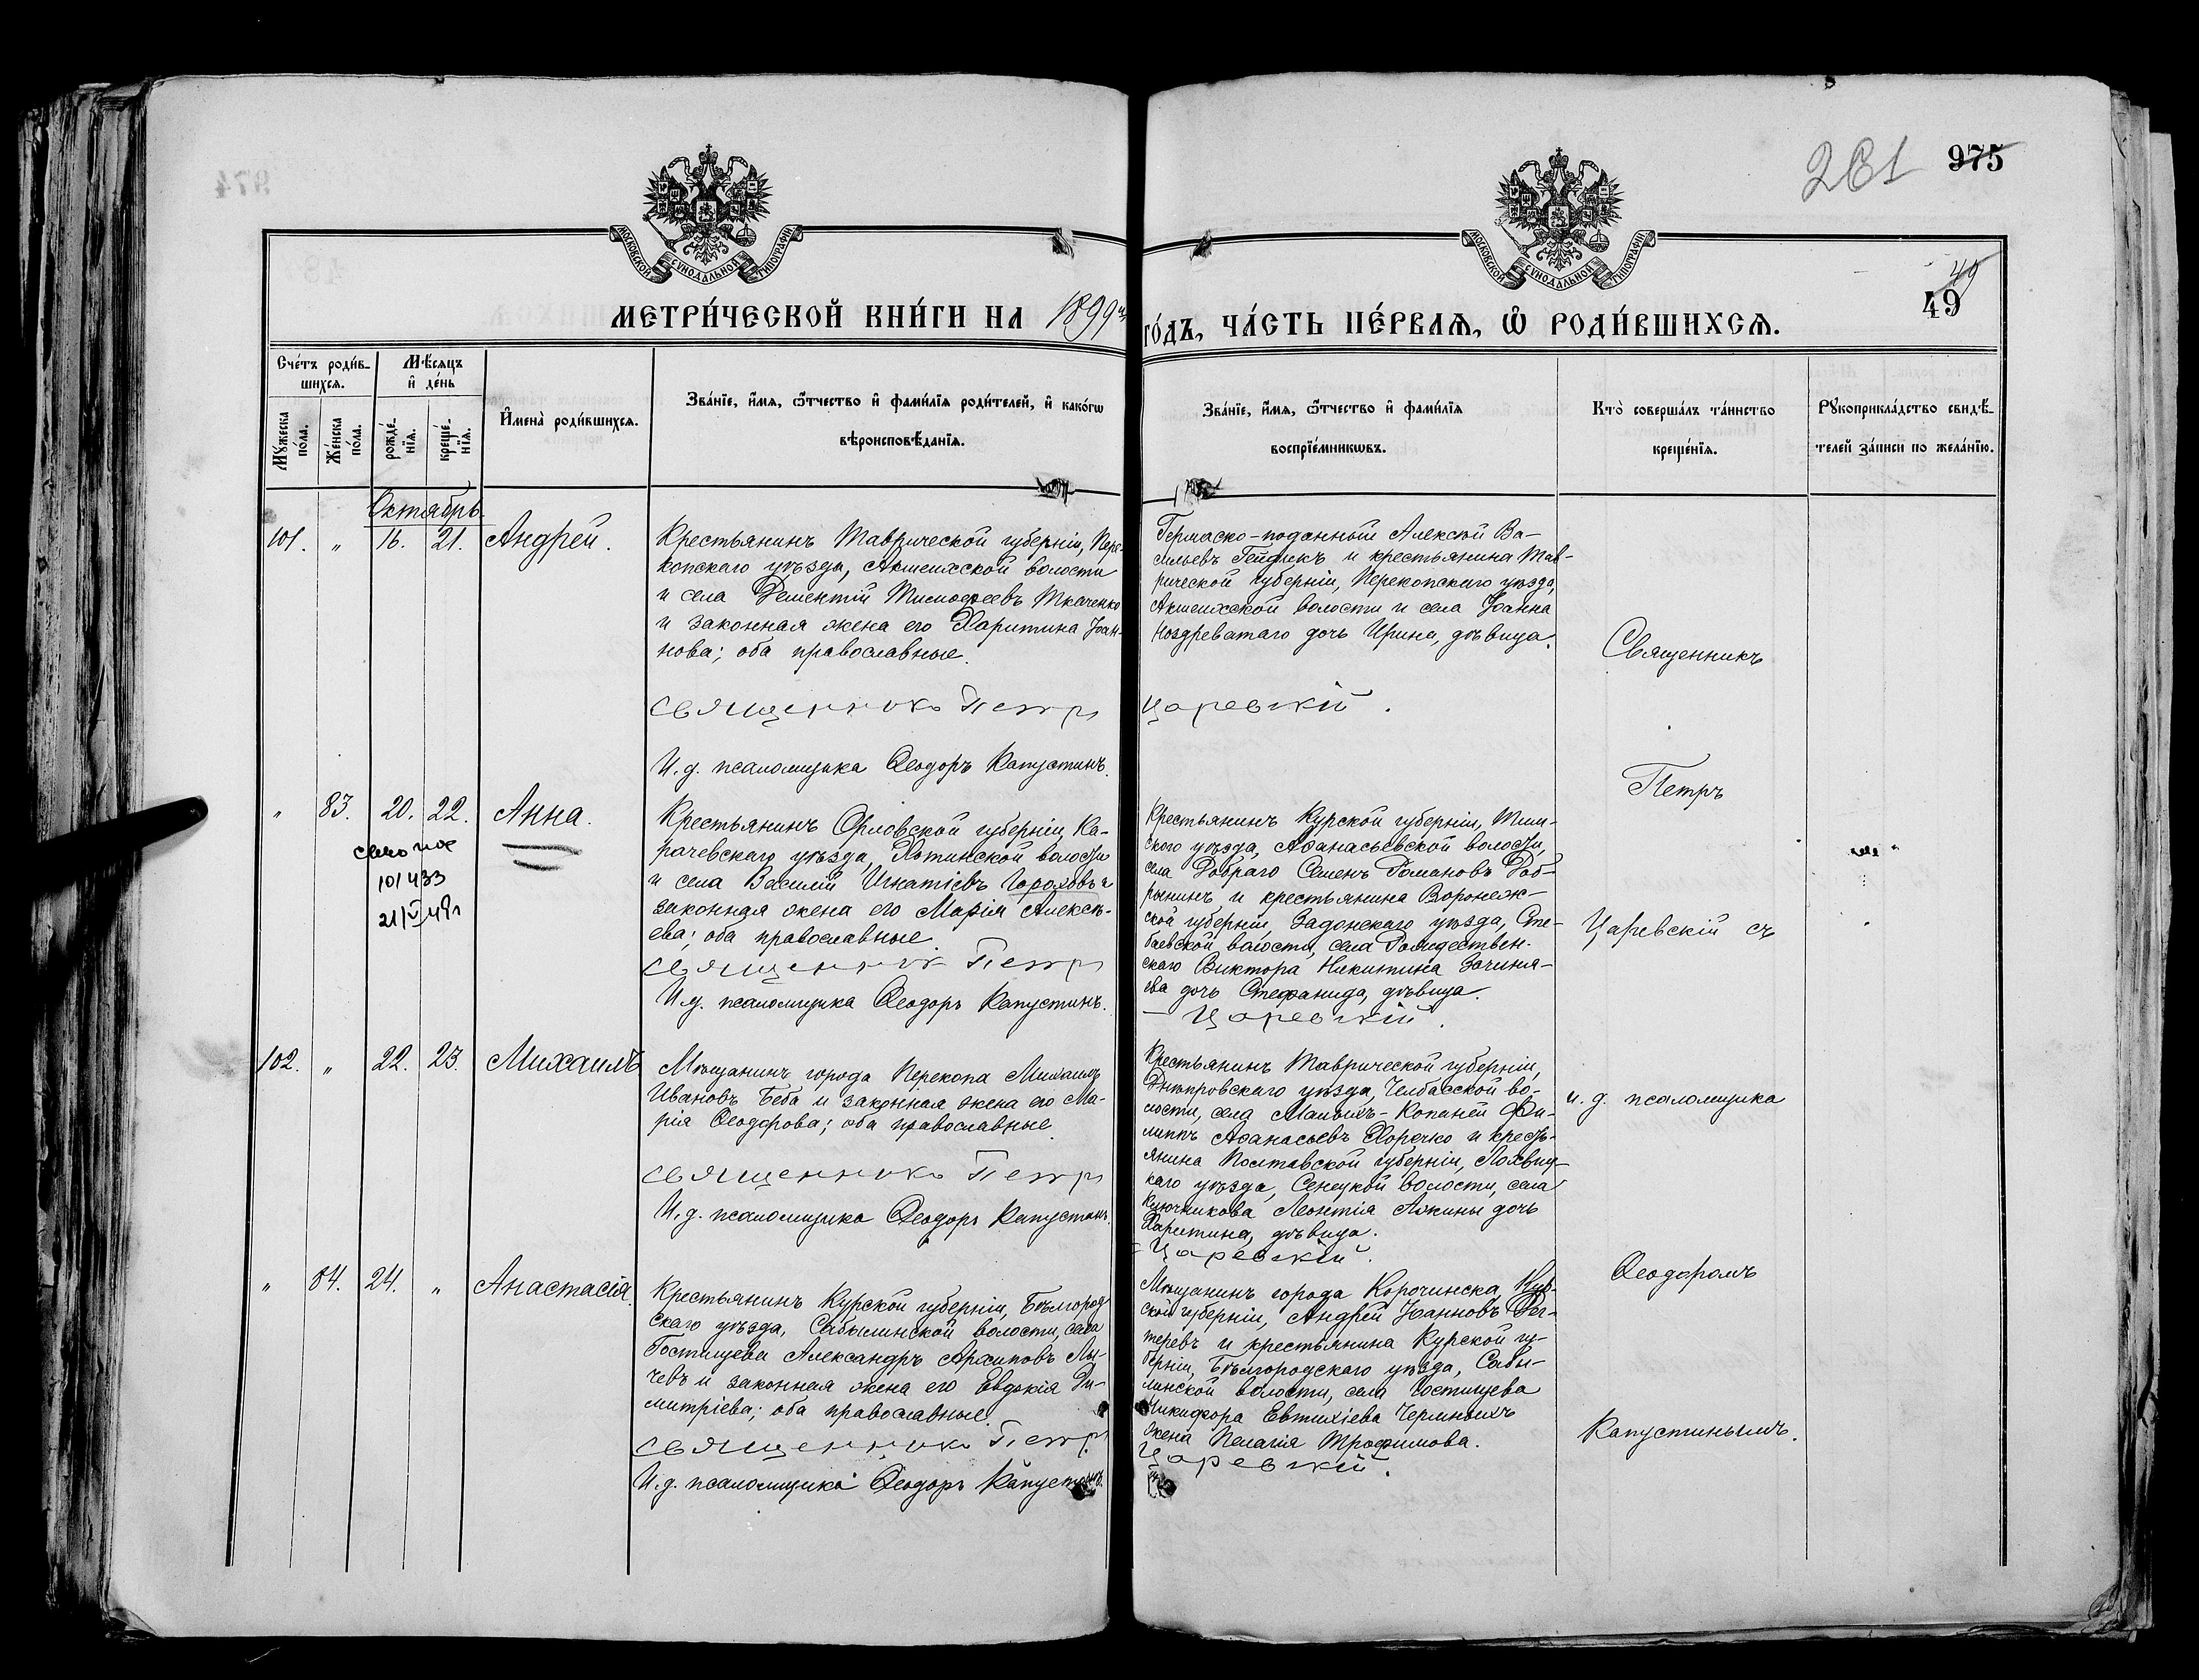 261 975
МОСКОВСКОЙ СУНОДАЛЬНОЙ ТИПОГРАФІИ
МОСКОВСКОЙ СУНОДАЛЬНОЙ ТИПОГРАФІИ
49
49
МЕТРИ́ЧЕСКОЙ КНИ́ГИ НА 1899й
ГО́ДЪ, ЧА́СТЬ ПЕ́РВАѦ, Ѡ҆ РОДИ́ВШИХСѦ.
Сче́тъ роди́в-
шихсѧ.
Мѣ́сѧцъ
и҆ де́нь
Мꙋ́жеска
по́ла.
Же́нска
по́ла.
рожде́-
нїѧ.
креще́-
нїѧ.
И҆мена̀ роди́вшихсѧ.
Зва́нїе, и҆́мѧ, ѻ҆́тчество и҆ фами́лїѧ роди́телей, и҆ како́гѡ
вѣроисповѣ́данїѧ.
Зва́нїе, и҆́мѧ, ѻ҆́тчество и҆ фами́лїѧ
воспрїе́мникѡвъ.
Кто̀ соверша́лъ та́инство
креще́нїѧ.
Рꙋкоприкла́дство свидѣ́-
телей за́писи по жела́нїю.
Октябрь.
101. " 16. 21. Андрей.
Крестьянинъ Таврической губерніи, Пере-
копскаго уѣзда, Акшеихской волости
и села Дементій Тимоѳеевъ Ткаченко
и законная жена его Харитина Іоан-
нова; оба православные.
Священникъ Петръ
И. д. псаломщика Ѳеодоръ Капустинъ.
Германо-поданный Алексѣй Ва-
сильевъ Гейдикъ и крестьянина Тав-
рической губерніи, Перекопскаго уѣзда,
Акшеихской волости и села Іоанна
Ноздреватаго дочь Ирина, дѣвица.
Царевскій.
Священникъ
Петръ
Царевскій съ
и. д. псаломщика
Ѳеодоромъ
Капустинымъ.
" 83. 20. 22. Анна.
101433
21/V 49г
Крестьянинъ Орловской губерніи, Ка-
рачевскаго уѣзда, Хотинской волости
и села Василій Игнатіевъ Гороховъ и
законная жена его Марія Алексѣ-
ева; оба православные.
Священникъ Петръ
И. д. псаломщика Ѳеодоръ Капустинъ.
Крестьянинъ Курской губерніи, Тим-
скаго уѣзда, Аѳанасьевской волости,
села Добраго Семенъ Романовъ Доб-
рынинъ и крестьянина Воронеж-
ской губерніи, Задонскаго уѣзда, Сте-
баевской волости, села Рождествен-
скаго Виктора Никитина Зачиня-
ева дочь Стефанида, дѣвица.
Царевскій.
102. " 22. 23. Михаилъ
Мѣщанинъ города Перекопа Михаилъ
Ивановъ Беба и законная жена его Ма-
рія Ѳеодорова; оба православные.
Священникъ Петръ
И. д. псаломщика Ѳеодоръ Капустинъ.
Крестьянинъ Таврической губерніи,
Днѣпровскаго уѣзда, Челбасской во-
лости, села Малыхъ-Копаней Фи-
липпъ Аѳанасьевъ Хоречко и кресть-
янина Полтавской губерніи, Лохвиц-
каго уѣзда, Сенецкой волости, села
Ключникова Леонтія Ляхины дочь
Харитина, дѣвица.
Царевскій.
" 84. 24. " Анастасія.
Крестьянинъ Курской губерніи, Бѣлгород-
скаго уѣзда, Сабынинской волости, села
Гостищева Александръ Архиповъ Лы-
чевъ и законная жена его Евдокія Ди-
митріева; оба православные.
Священникъ Петръ
И. д. псаломщика Ѳеодоръ Капустинъ.
Мѣщанинъ города Корочинска, Кур-
ской губерніи, Андрей Іоанновъ Дег-
теревъ и крестьянина Курской гу-
берніи, Бѣлгородскаго уѣзда, Сабы-
нинской волости, села Гостищева
Никифора Евтихіева Черныхъ
жена Пелагія Трофимова.
Царевскій.